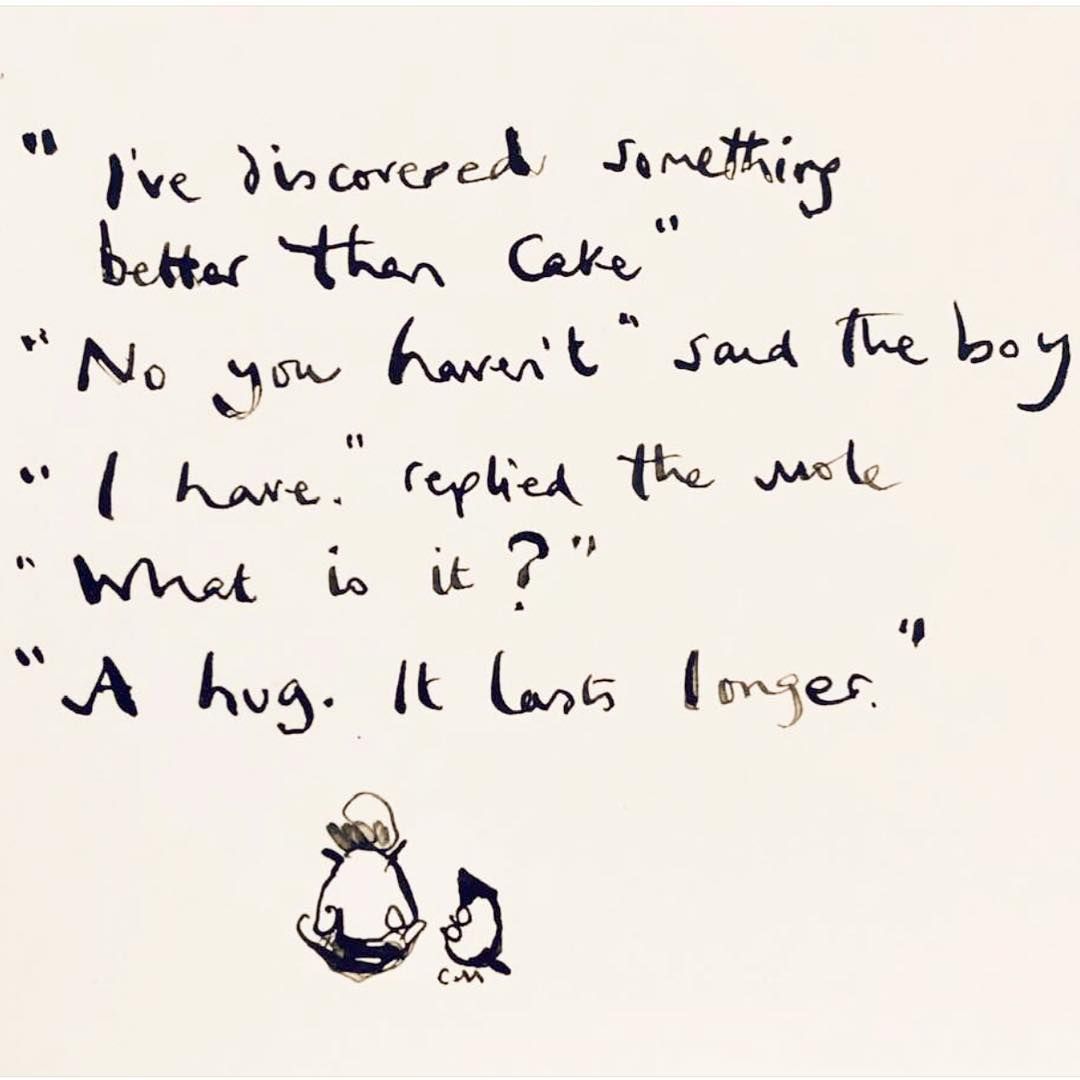 "I've discovered something
better than cake"
"No you haven't" said the boy
"I have." replied the mole
"What is it?"
"A hug. It lasts longer."
CM